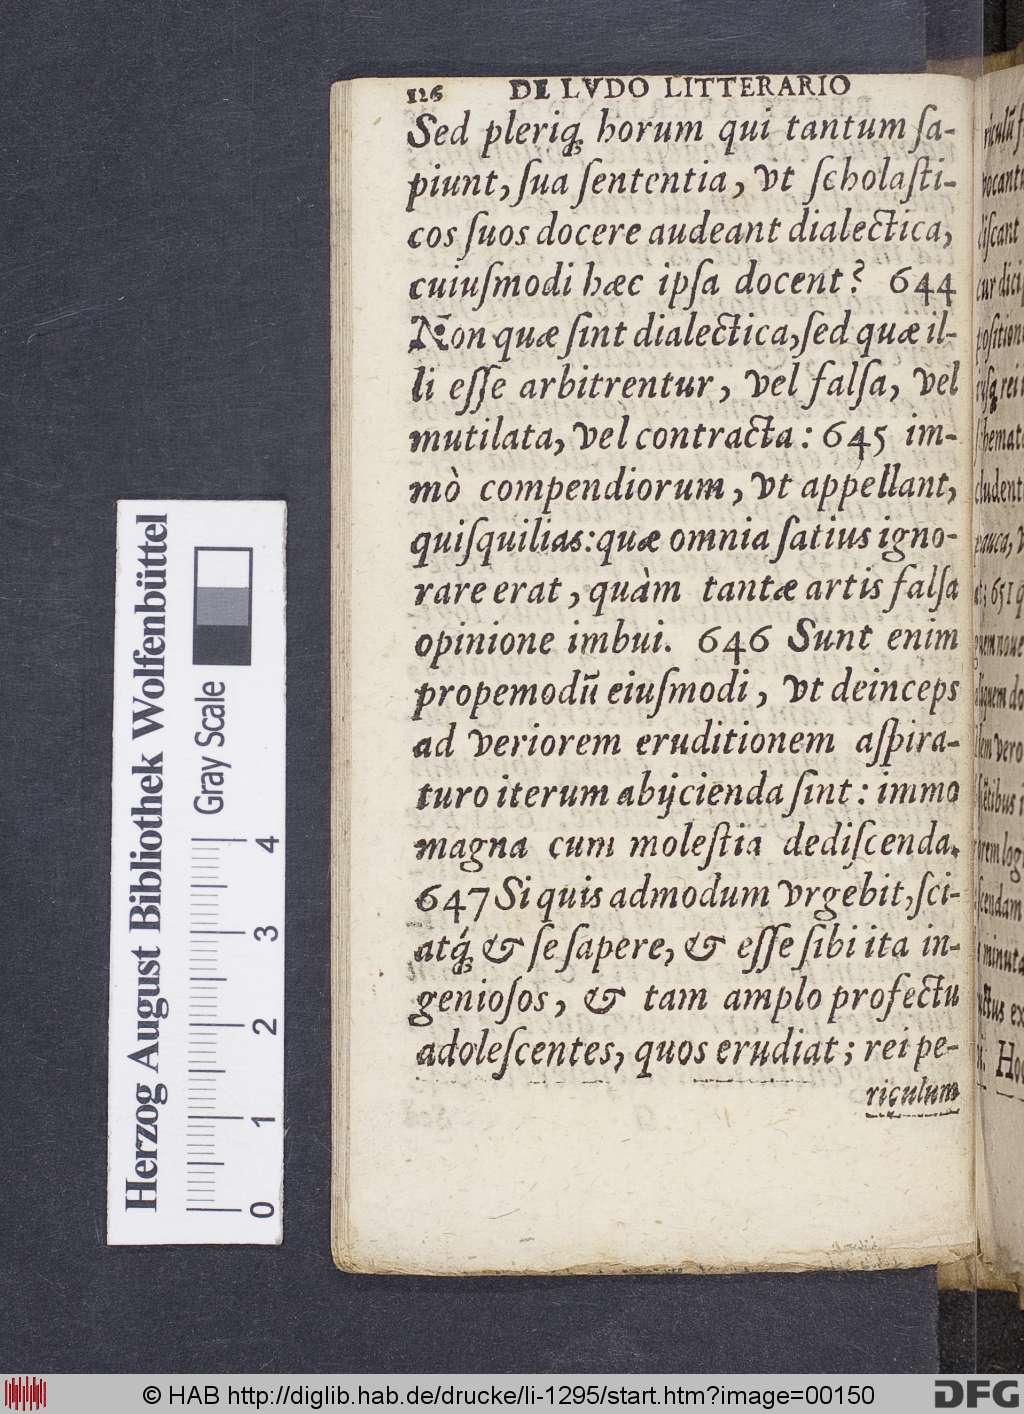 126 DE LVDO LITTERARIO
Sed pleriq́; horum qui tantum ſa-
piunt, ſua ſententia, vt ſcholaſti-
cos ſuos docere audeant dialectica,
cuiuſmodi hæc ipſa docent? 644
Non quæ ſint dialectica, ſed quæ il-
li eſſe arbitrentur, vel falſa, vel
mutilata, vel contracta: 645 im-
mò compendiorum, vt appellant,
quiſquilias: quæ omnia ſatius igno-
rare erat, quàm tantæ artis falſa
opinione imbui. 646 Sunt enim
propemodū eiuſmodi, vt deinceps
ad veriorem eruditionem aſpira-
turo iterum abijcienda ſint: immo
magna cum moleſtia dediſcenda.
647 Si quis admodum vrgebit, ſci-
atq́; & ſe ſapere, & eſſe ſibi ita in-
genioſos, & tam amplo profectu
adoleſcentes, quos erudiat; rei pe-
riculum
Herzog August Bibliothek Wolfenbüttel
Gray Scale
0 1 2 3 4
© HAB http://diglib.hab.de/drucke/li-1295/start.htm?image=00150
DFG